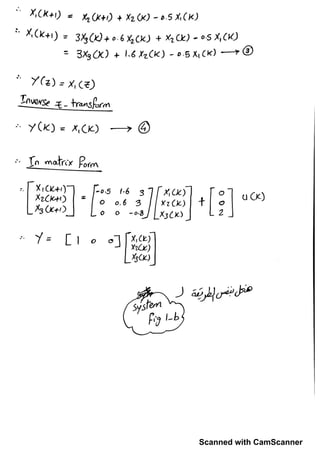 ∴ X₁(K+1) = X₂(K+1) + X₂(K) - 0.5 X₁(K)
∴ X₁(K+1) = 3X₃(K) + 0.6 X₂(K) + X₂(K) - 0.5 X₁(K)
= 3X₃(K) + 1.6 X₂(K) - 0.5 X₁(K) → ③
∵ Y(z) = X₁(z)
Inverse z-transform
∴ Y(K) = X₁(K) → ④
∴ In matrix form
∴ [X₁(K+1) X₂(K+1) X₃(K+1)] = [-0.5 1.6 3 0 0.6 3 0 0 -0.8] [X₁(K) X₂(K) X₃(K)] + [0 0 2] u(K)
∴ Y = [1 0 0] [X₁(K) X₂(K) X₃(K)]
بنفس الطريقة ل
system
Fig 1-b
Scanned with CamScanner